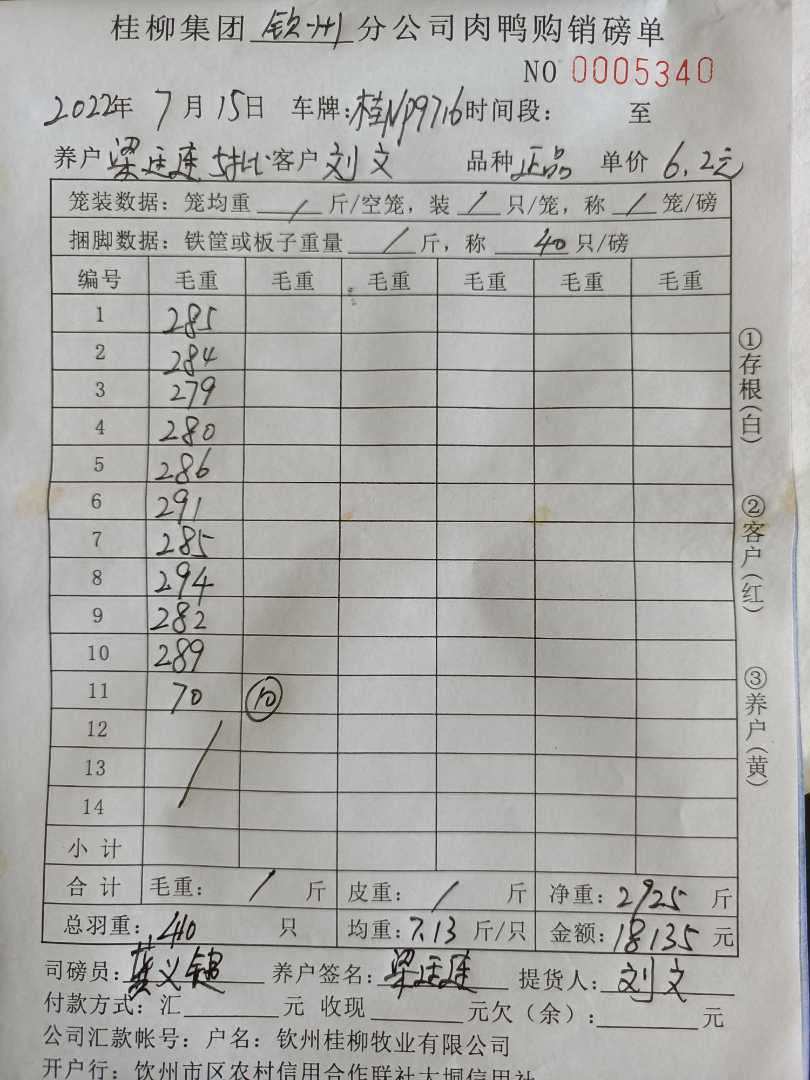 桂柳集团钦州分公司肉鸭购销磅单
NO 0005340
2022年 7月15日 车牌:桂NP9716 时间段: 至
养户 梁廷连 5批 客户 刘文 品种 正品 单价 6.2元
笼装数据: 笼均重 / 斤/空笼, 装 / 只/笼, 称 / 笼/磅
捆脚数据: 铁筐或板子重量 / 斤, 称 40 只/磅
编号 毛重 毛重 毛重 毛重 毛重 毛重
1 285
2 284
3 279
4 280
5 286
6 291
7 285
8 294
9 282
10 289
11 70 ⑩
12
13
14
小计
合计 毛重: / 斤 皮重: / 斤 净重: 2925 斤
总羽重: 410 只 均重: 7.13 斤/只 金额: 18135 元
司磅员: 义 养户签名: 梁廷连 提货人: 刘文
付款方式: 汇 元 收现 元欠(余): 元
公司汇款帐号: 户名: 钦州桂柳牧业有限公司
开户行: 钦州市区农村信用合作联社大垌信用社
①存根(白)
②客户(红)
③养户(黄)